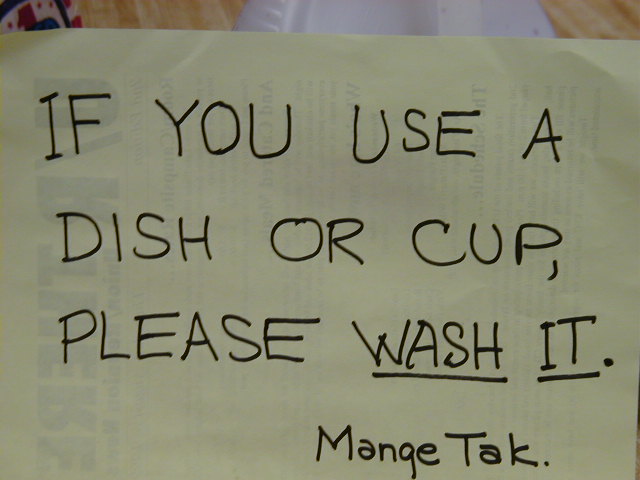 IF YOU USE A
DISH OR CUP,
PLEASE WASH IT.
Mange Tak.